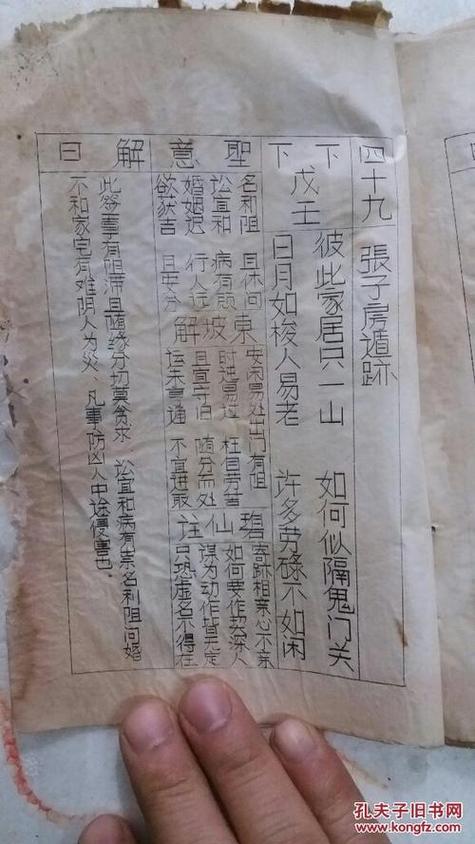 四十九 張子房遁跡
下下
戊壬
彼此家居只一山 如何似隔鬼门关
日月如梭人易老 许多劳碌不如闲
聖意
名利阻 且休问
讼宜和 病有祟
婚姻迟 行人远
欲获吉 且安分
東坡解
安闲易处 出门有阻
时进易过 枉自劳苦
且宜守旧 随分而处
运未亨通 不宜进取
碧仙註
寄跡相亲心不亲
如何要作契深人
谋为动作皆天定
只恐虚名不得在
解曰
此签事有阻滞且随缘分切莫贪求 讼宜和病有祟名利阻间婚
不和家宅有难阴人为災、凡事防凶人中途侵害也.
孔夫子旧书网
www.kongfz.com